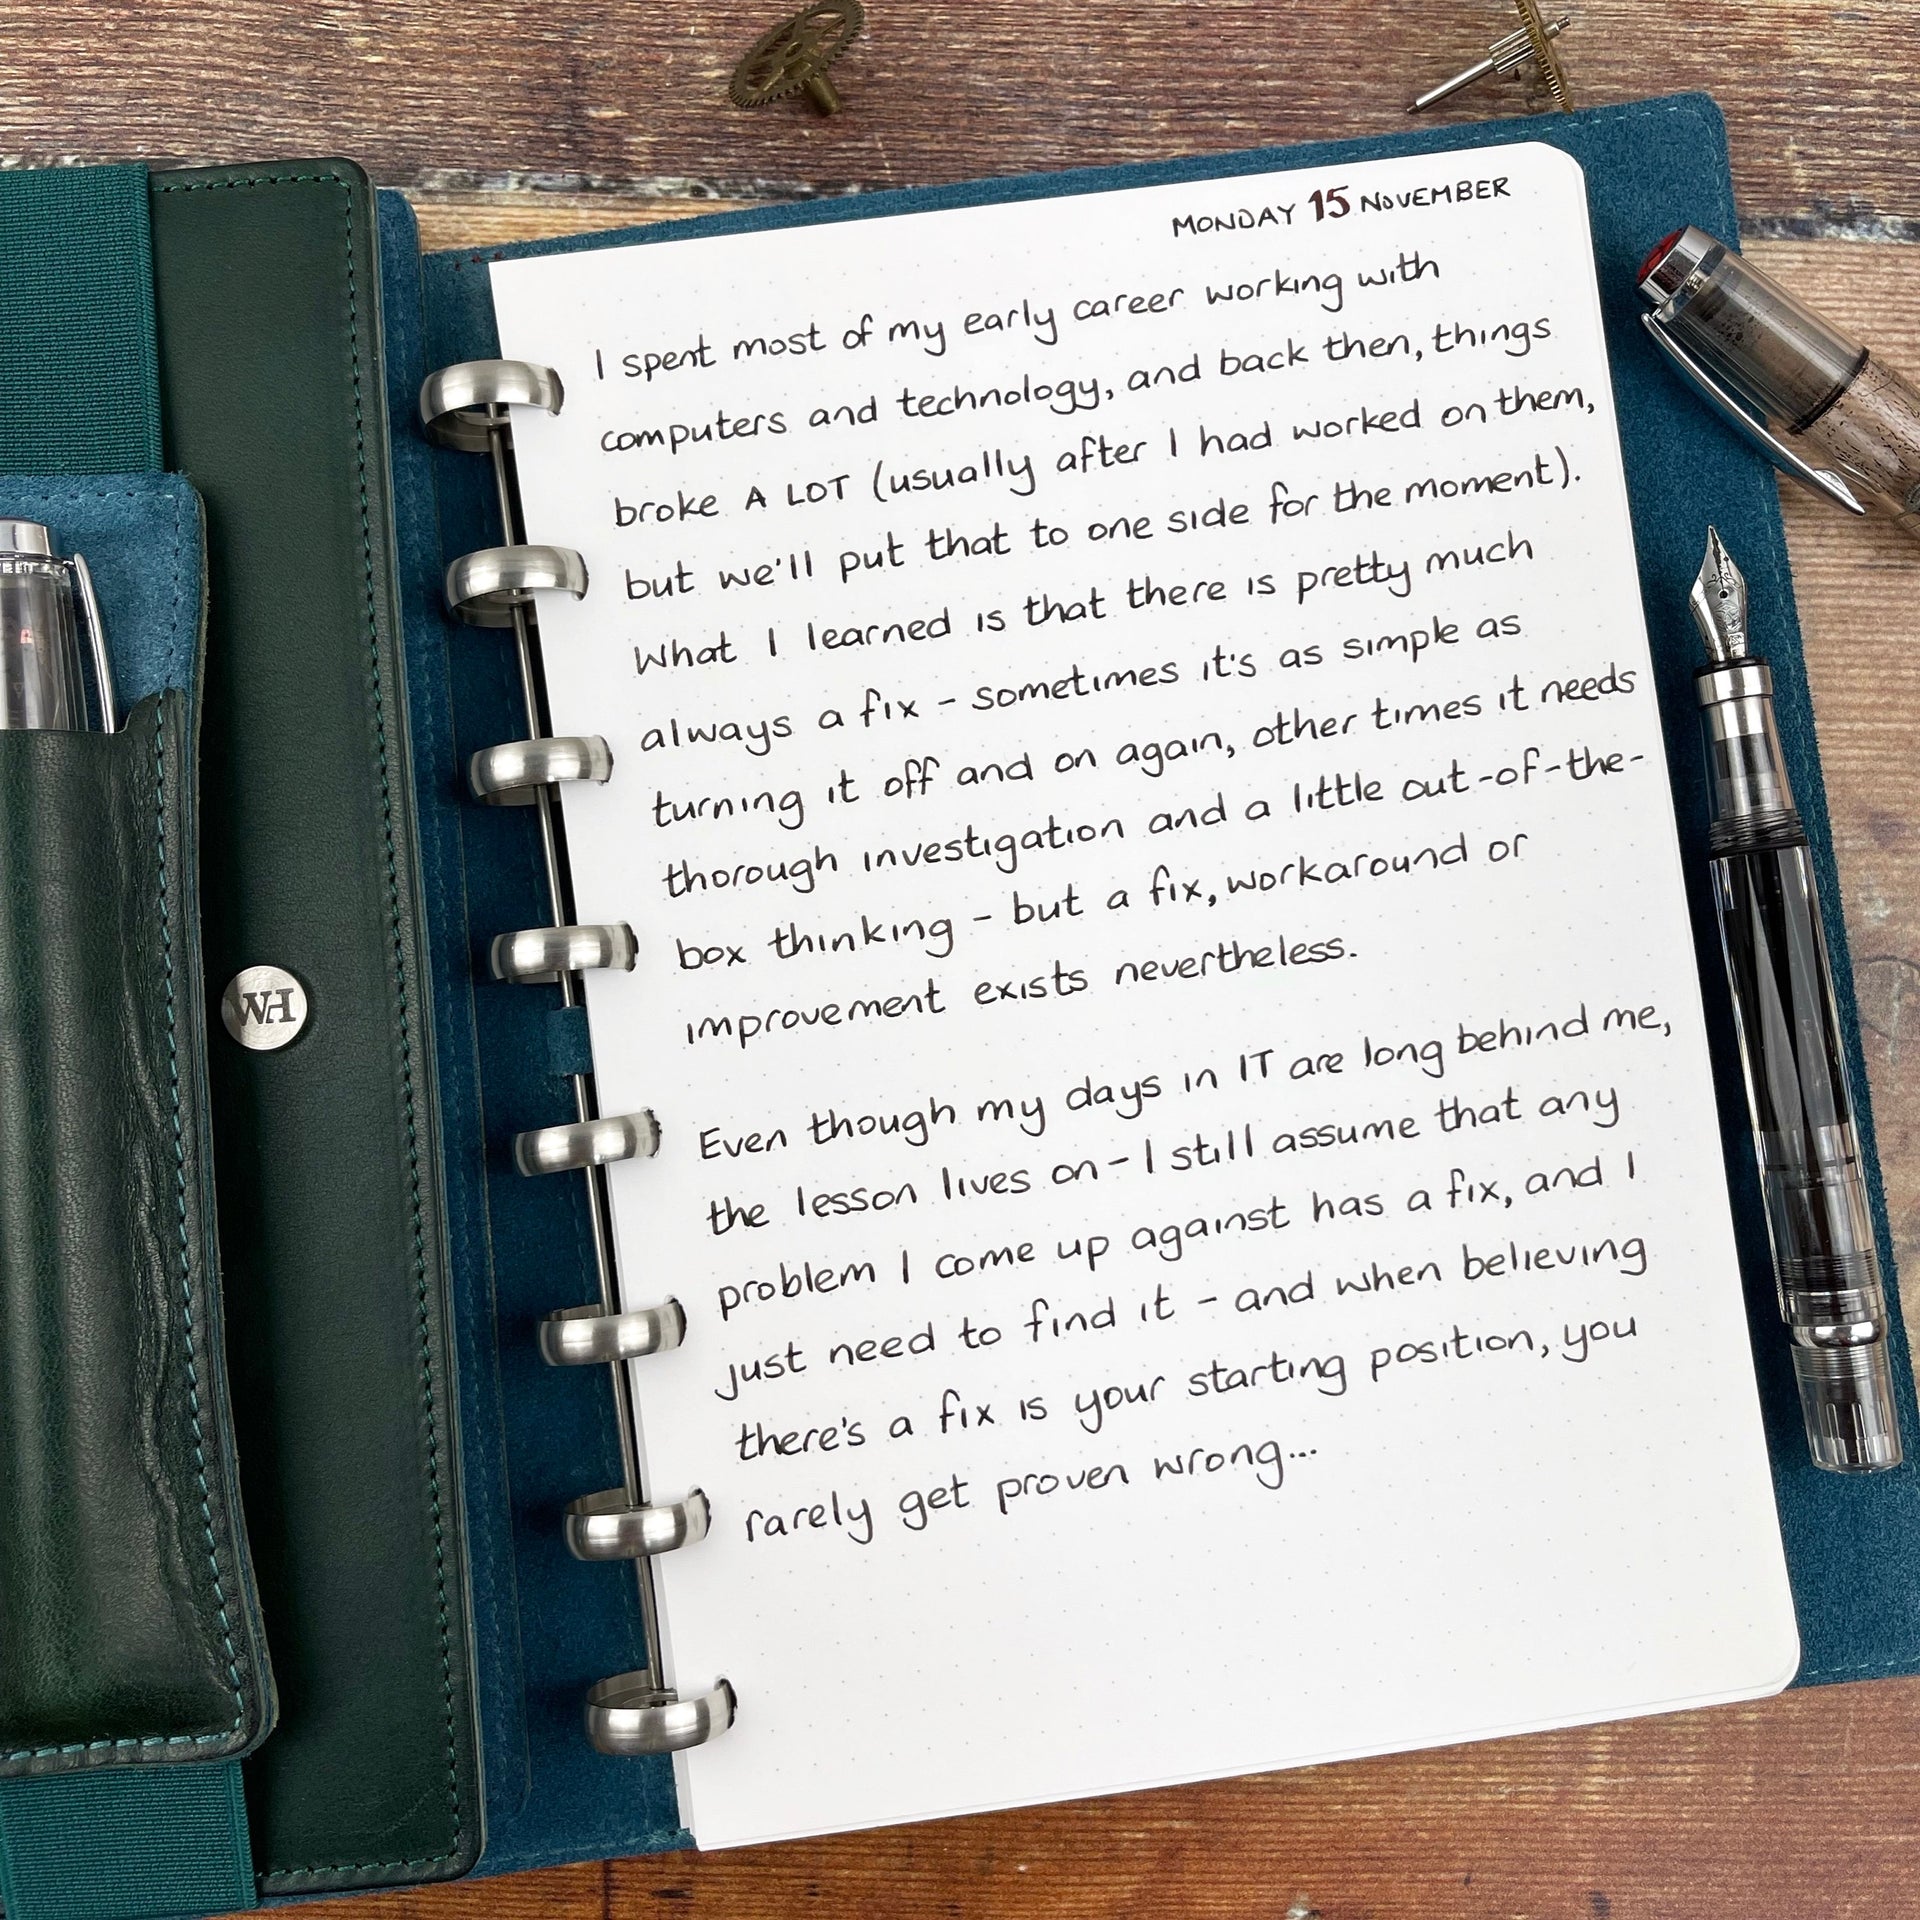 MONDAY 15 NOVEMBER
I spent most of my early career working with
computers and technology, and back then, things
broke A LOT (usually after I had worked on them,
but we'll put that to one side for the moment).
What I learned is that there is pretty much
always a fix - sometimes it's as simple as
turning it off and on again, other times it needs
thorough investigation and a little out-of-the-
box thinking - but a fix, workaround or
improvement exists nevertheless.
Even though my days in IT are long behind me,
the lesson lives on - I still assume that any
problem I come up against has a fix, and I
just need to find it - and when believing
there's a fix is your starting position, you
rarely get proven wrong...
WH